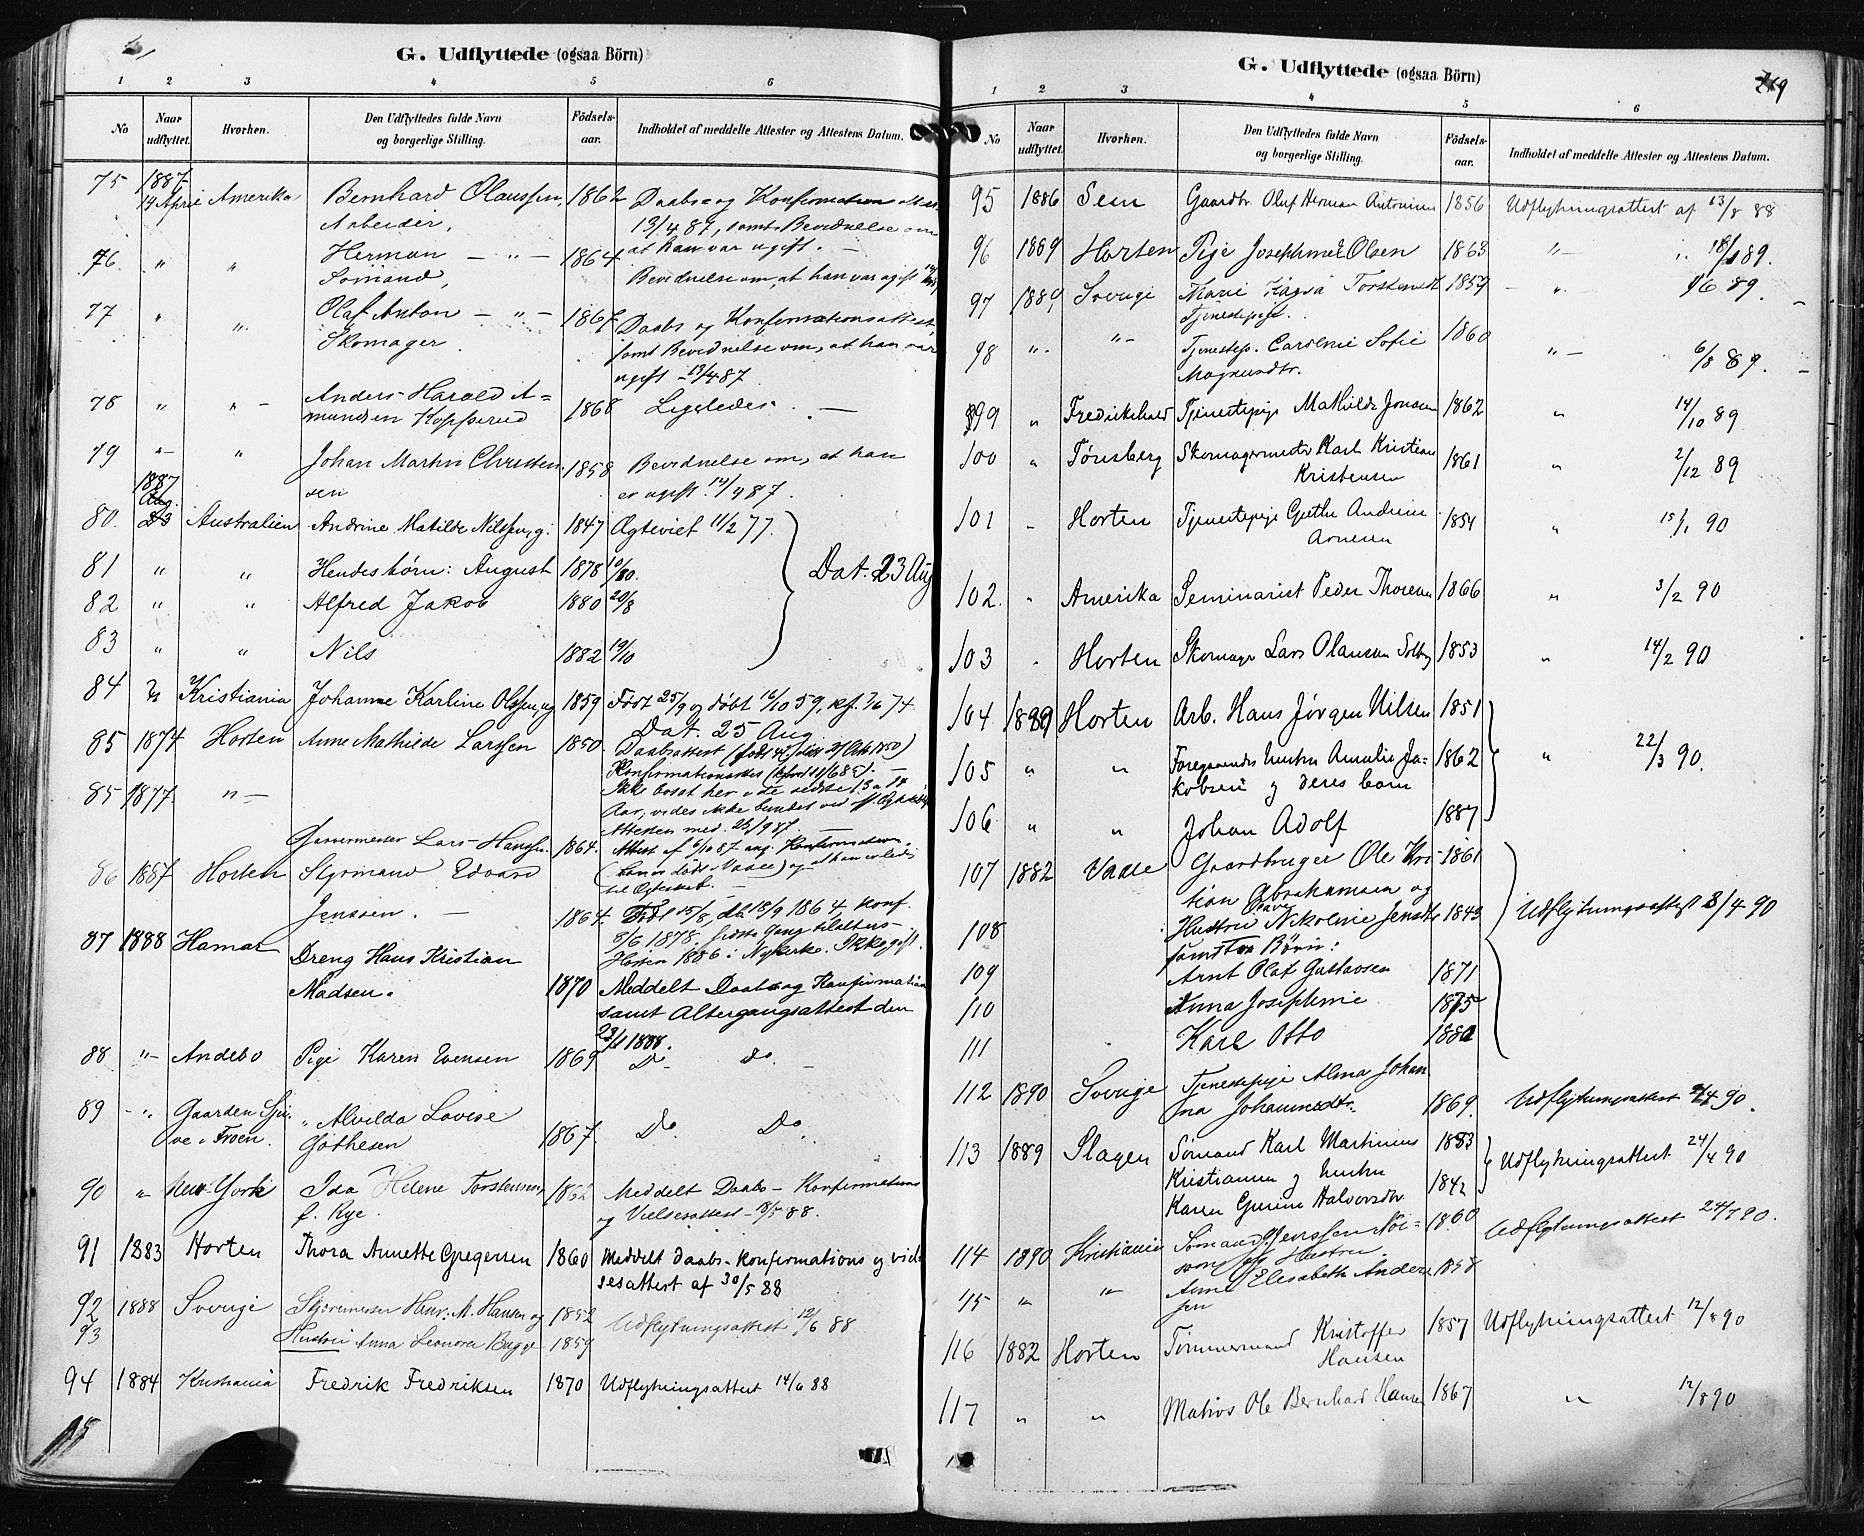 G. Udflyttede (ogsaa Börn)
1 2 3 4 5 6
No Naar udflyttet. Hvorhen. Den Udflyttedes fulde Navn og borgerlige Stilling. Födsels-aar. Indholdet af meddelte Attester og Attestens Datum.
75 1887 14 April Amerika Bernhard Olaussen, 1862 Daabs- og Konfirmations
Arbeider, 13/4 87, samt Bevidnelse om
at han var ugift. —
76 " " Herman — " — 1864 Bevidnelse om, at han var ugift
Sømand,
77 " " Olaf Anton — " — 1867 Daabs og Konfirmationsattest,
Skomager samt Bevidnelse om, at han var
ugift – 13/4 87
78 " " – Anders Harald A=
mundsen Kopperud 1868 Ligeledes. —
79 " " Johan Martin Christen
sen 1858 Bevidnelse om, at han
er ugift 14/4 87.
1887 Aug.
80. 23 Australien Andrine Matilde Nilssen, g. 1847 Ægteviet 11/2 77.
81 " " Hendes børn: August 1878 10/80. Dat. 23 Aug
82 " " Alfred Jakob 1880 20/8
83 " " Nils 1882 19/10
84 Kristiania Johanne Karline Olssen, ug 1859 Født 25/9 og døbt 16/10 59, kf. 74
Dat. 25 Aug
85 1874 Horten Anne Mathilde Larssen 1850. Daabsattest
Konfirmationsattest
85 1877 " — Ikke bosat her i de sidste 13 a 14
Aar, vides ikke bundet ved
Attesten med. 23/9 87. —
Garvermester Lars Hanssen 1864. Attest af 6/10 87 ang. Konfirmation
86 1887 Horten Styrmand Edvard
Jenssen. — 1864. Født 15/8, db 18/9 1864, konf.
8/6 1878, sidste Gang tilalters
Horten 1886 i Nykirke. Ikke gift.
87 1888 Hamar Dreng Hans Kristian
Madsen. 1870 Meddelt Daabs og Konfirmation
samt Altergangsattest den
23/1 1888.
88 "– Andebo Pige Karen Evensen 1869 Do Do
89 – " Gaarden
ve i Froen. " Alvilda Lovise
Gøthesen 1867. Do Do.
90 " New-York Ida Helene Torstensen, 1862 Meddelt Daabs – Konfirmations
f. Rye. og Vielsesattest – 8/5 88.
91 1883 Horten Thora Annette Gregersen 1860 Meddelt Daabs-Konfirmations og viel
sesattest af 30/5 88
92 1888 Sverige Skovmester Henr. M. Hansen og 1852 Udflytningsattest 12/6 88
93 Hustru Anna Leonora Bugge 1859
94 1884 Kristiania Fredrik Fredriksen 1870 Udflytningsattest 14/6 88
95
G. Udflyttede (ogsaa Börn)
219
1 2 3 4 5 6
No Naar udflyttet. Hvorhen. Den Udflyttedes fulde Navn og borgerlige Stilling. Födsels-aar. Indholdet af meddelte Attester og Attestens Datum.
95 1886 Sem Gaardbr Oluf Herman Antonisen 1856 Udflytningsattest af 23/8 88
96 1889 Horten Pige Josephine Olsen 1863 "– 18/1 89.
97 1889 Sverige Marie Torstensdt 1859 – " 6 89.
Tjenestepige.
98 " " – Tjenestep. Caroline Sofie 1860 " — 6/8 89.
Magnusdtr.
99 " Fredrikshald Tjenestepige Mathilde Jonasen 1862 " 14/10 89
100 " Tønsberg Skomagermester Karl Kristian 1861 " 2/12 89
Kristensen
101 " Horten Tjenestepige Grethe Andrine 1854 " 15/1 90
Arnesen
102. " Amerika Seminarist Peder Thoresen 1866 " 3/2 90
103 " Horten Skomager Lars Olausen Solberg 1853 " 14/2 90
104 1889 Horten Arb. Hans Jørgen Nilsen 1851
105 " " Foregaaendes hustru Amalie Ja- 1862 " 22/3 90.
kobsen og deres barn
106 " " Johan Adolf 1887
107 1882 Vaale Gaardbruger Ole Kri- 1861
stian Abrahamsen og
108 Hustru Olave Nikoline Jensdt 1843 Udflytningsattest 3/4 90
samt Børn:
109 Arnt Olaf Gustavsen 1871
110 Anna Josephine 1875
111 Karl Otto 1880
112 1890 Sverige Tjenestepige Alma Johan
na Johannesdtr. 1869. Udflytningsattest 4 90.
113 1889 Slagen Sømand Karl Martinius 1883 Udflytningsattest 24/4 90
Kristiansen og hustru
Karen Gurine Halvorsdtr 1842
114 1890 Kristiania Sømand Jenssen 1860 Udflytningsattest 24/7 90.
og Hustru
115 " " Anne Elisabeth Ander 1858
sen
116 1882 Horten Tømmermand Kristoffer 1857 Udflytningsattest 12/8 90
Hansen
117 " " Matros Ole Bernhard Hansen 1867 " 12/8 90